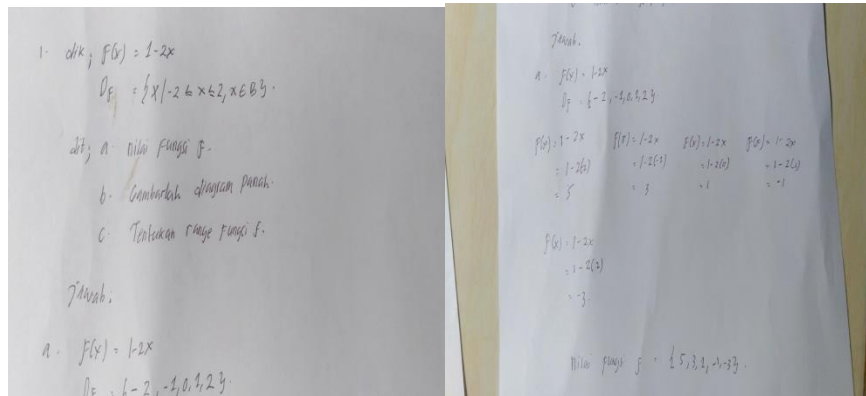 1. dik; F(x) = 1-2x
DF = {x/-2 ≤ x ≤ 2, x ∈ B}.
dit; a. nilai fungsi f.
b. Gambarlah diagram panah.
c. Tentukan range fungsi f.
Jawab.
a. F(x) = 1-2x
DF = {-2, -1, 0, 1, 2}.
Jawab.
a. F(x) = 1-2x
DF = {-2, -1, 0, 1, 2}
F(x) = 1-2x F(x) = 1-2x F(x) = 1-2x F(x) = 1-2x
= 1-2(2) = 1-2(-1) = 1-2(0) = 1-2(1)
= 5 = 3 = 1 = -1
F(x) = 1-2x
= 1-2(2)
= -3.
Nilai fungsi f = {5, 3, 1, -1, -3}.